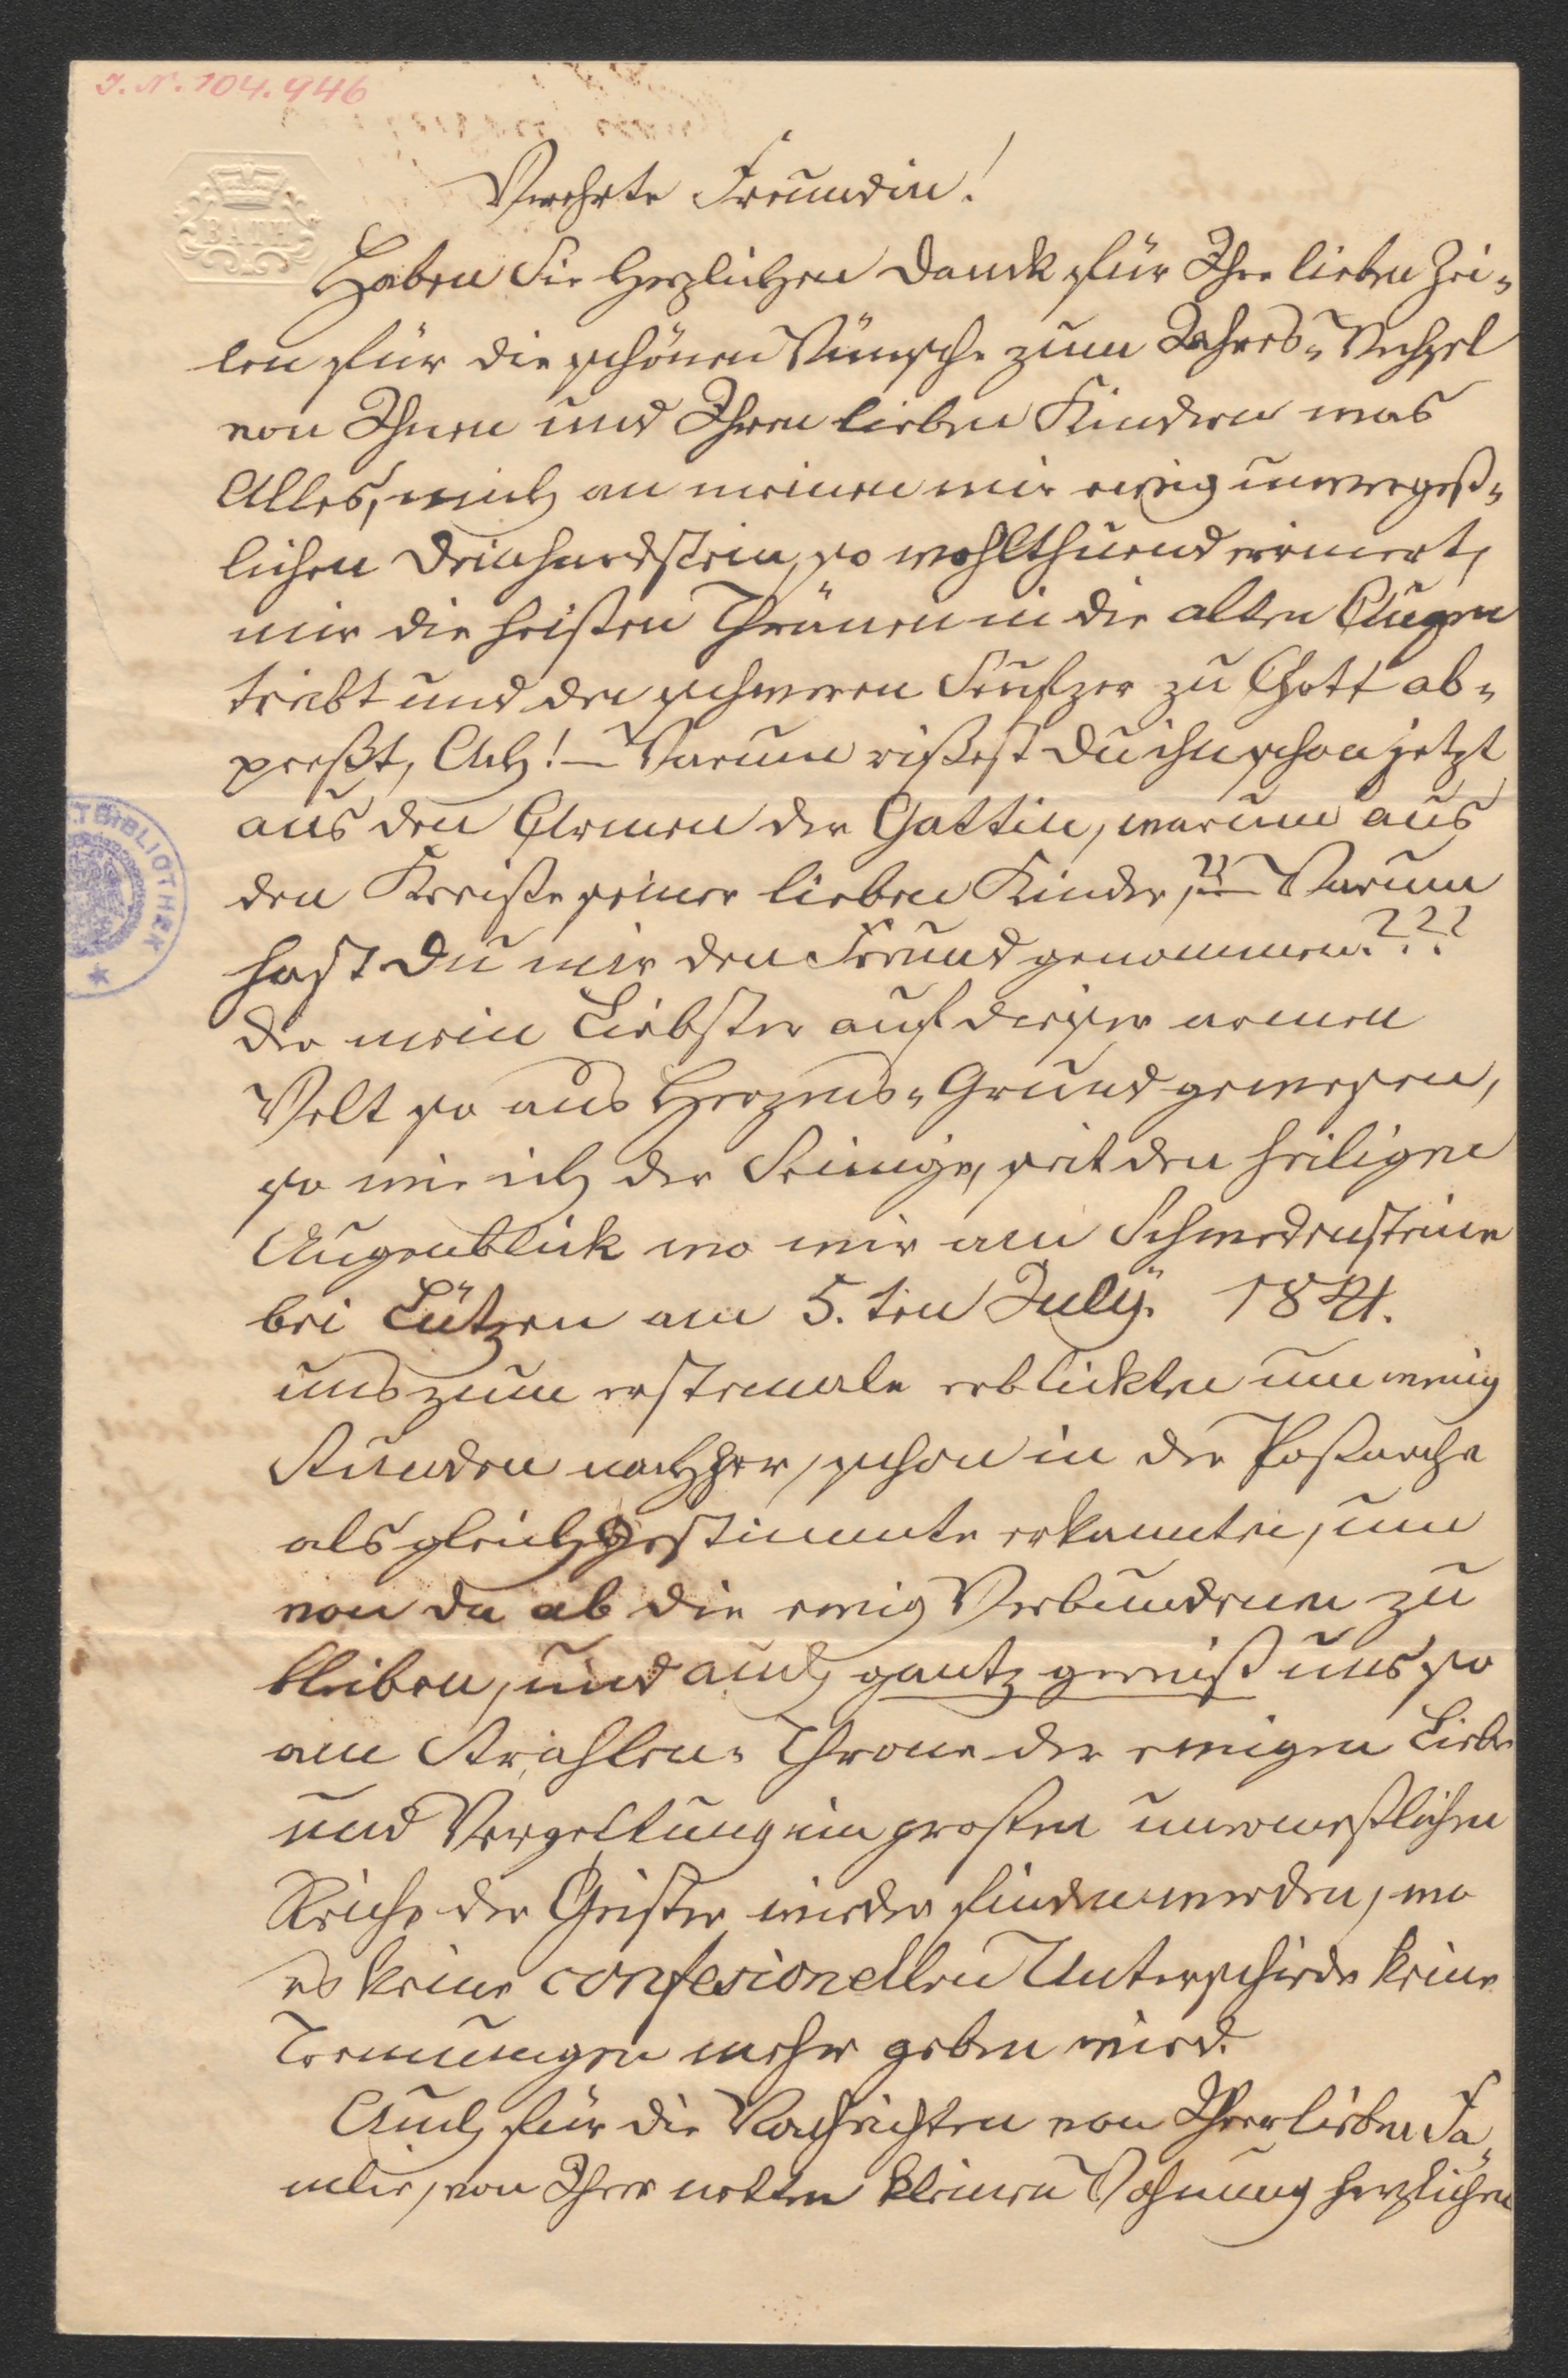 J. N. 104.946
BATH
Verehrte Freundin!
Haben Sie herzlichen Dank für Ihre lieben Zei-
len für die schönen Wünsche zum Jahres-Wechsel
von Ihnen und Ihren lieben Kindern was
Alles, mich an meinen mir ewig unvergeß-
lichen Deinhardstein, so wohlthuend erinnert,
mir die heißen Thränen in die alten Augen
treibt und den schweren Seufzer zu Gott ab-
preßt, Ach! – Warum rißest Du ihn schon jetzt
aus den Armen der Gattin, warum aus
den Kreiße seiner lieben Kinder, ?! – Warum
hast Du mir den Freund genommen???
der mein Liebster auf dieser armen
Welt so aus Herzens-Grund gewesen,
so wie ich der Seinige, seit den heiligen
Augenblick wo wir am Schwedensteine
bei Lützen am 5. ten July. 1841.
uns zum erstemale erblickten um wenig
Stunden nachher, schon in der
als gleichgestimmte erkannten, um
von da ab die ewig Verbundenen zu
bleiben, und auch gantz gewiß uns so
am Strahlen-Throne der ewigen Liebe
und Vergeltung im großen unermeßlichen
Reiche der Geister wieder finden werden, wo
es keine confesionellen Unterschiede keine
Trennungen mehr geben wird.
Auch für die Nachrichten von Ihrer lieben Fa-
milie, von Ihrer netten kleinen Wohnung herzlichen
TBIBLIOTHEK